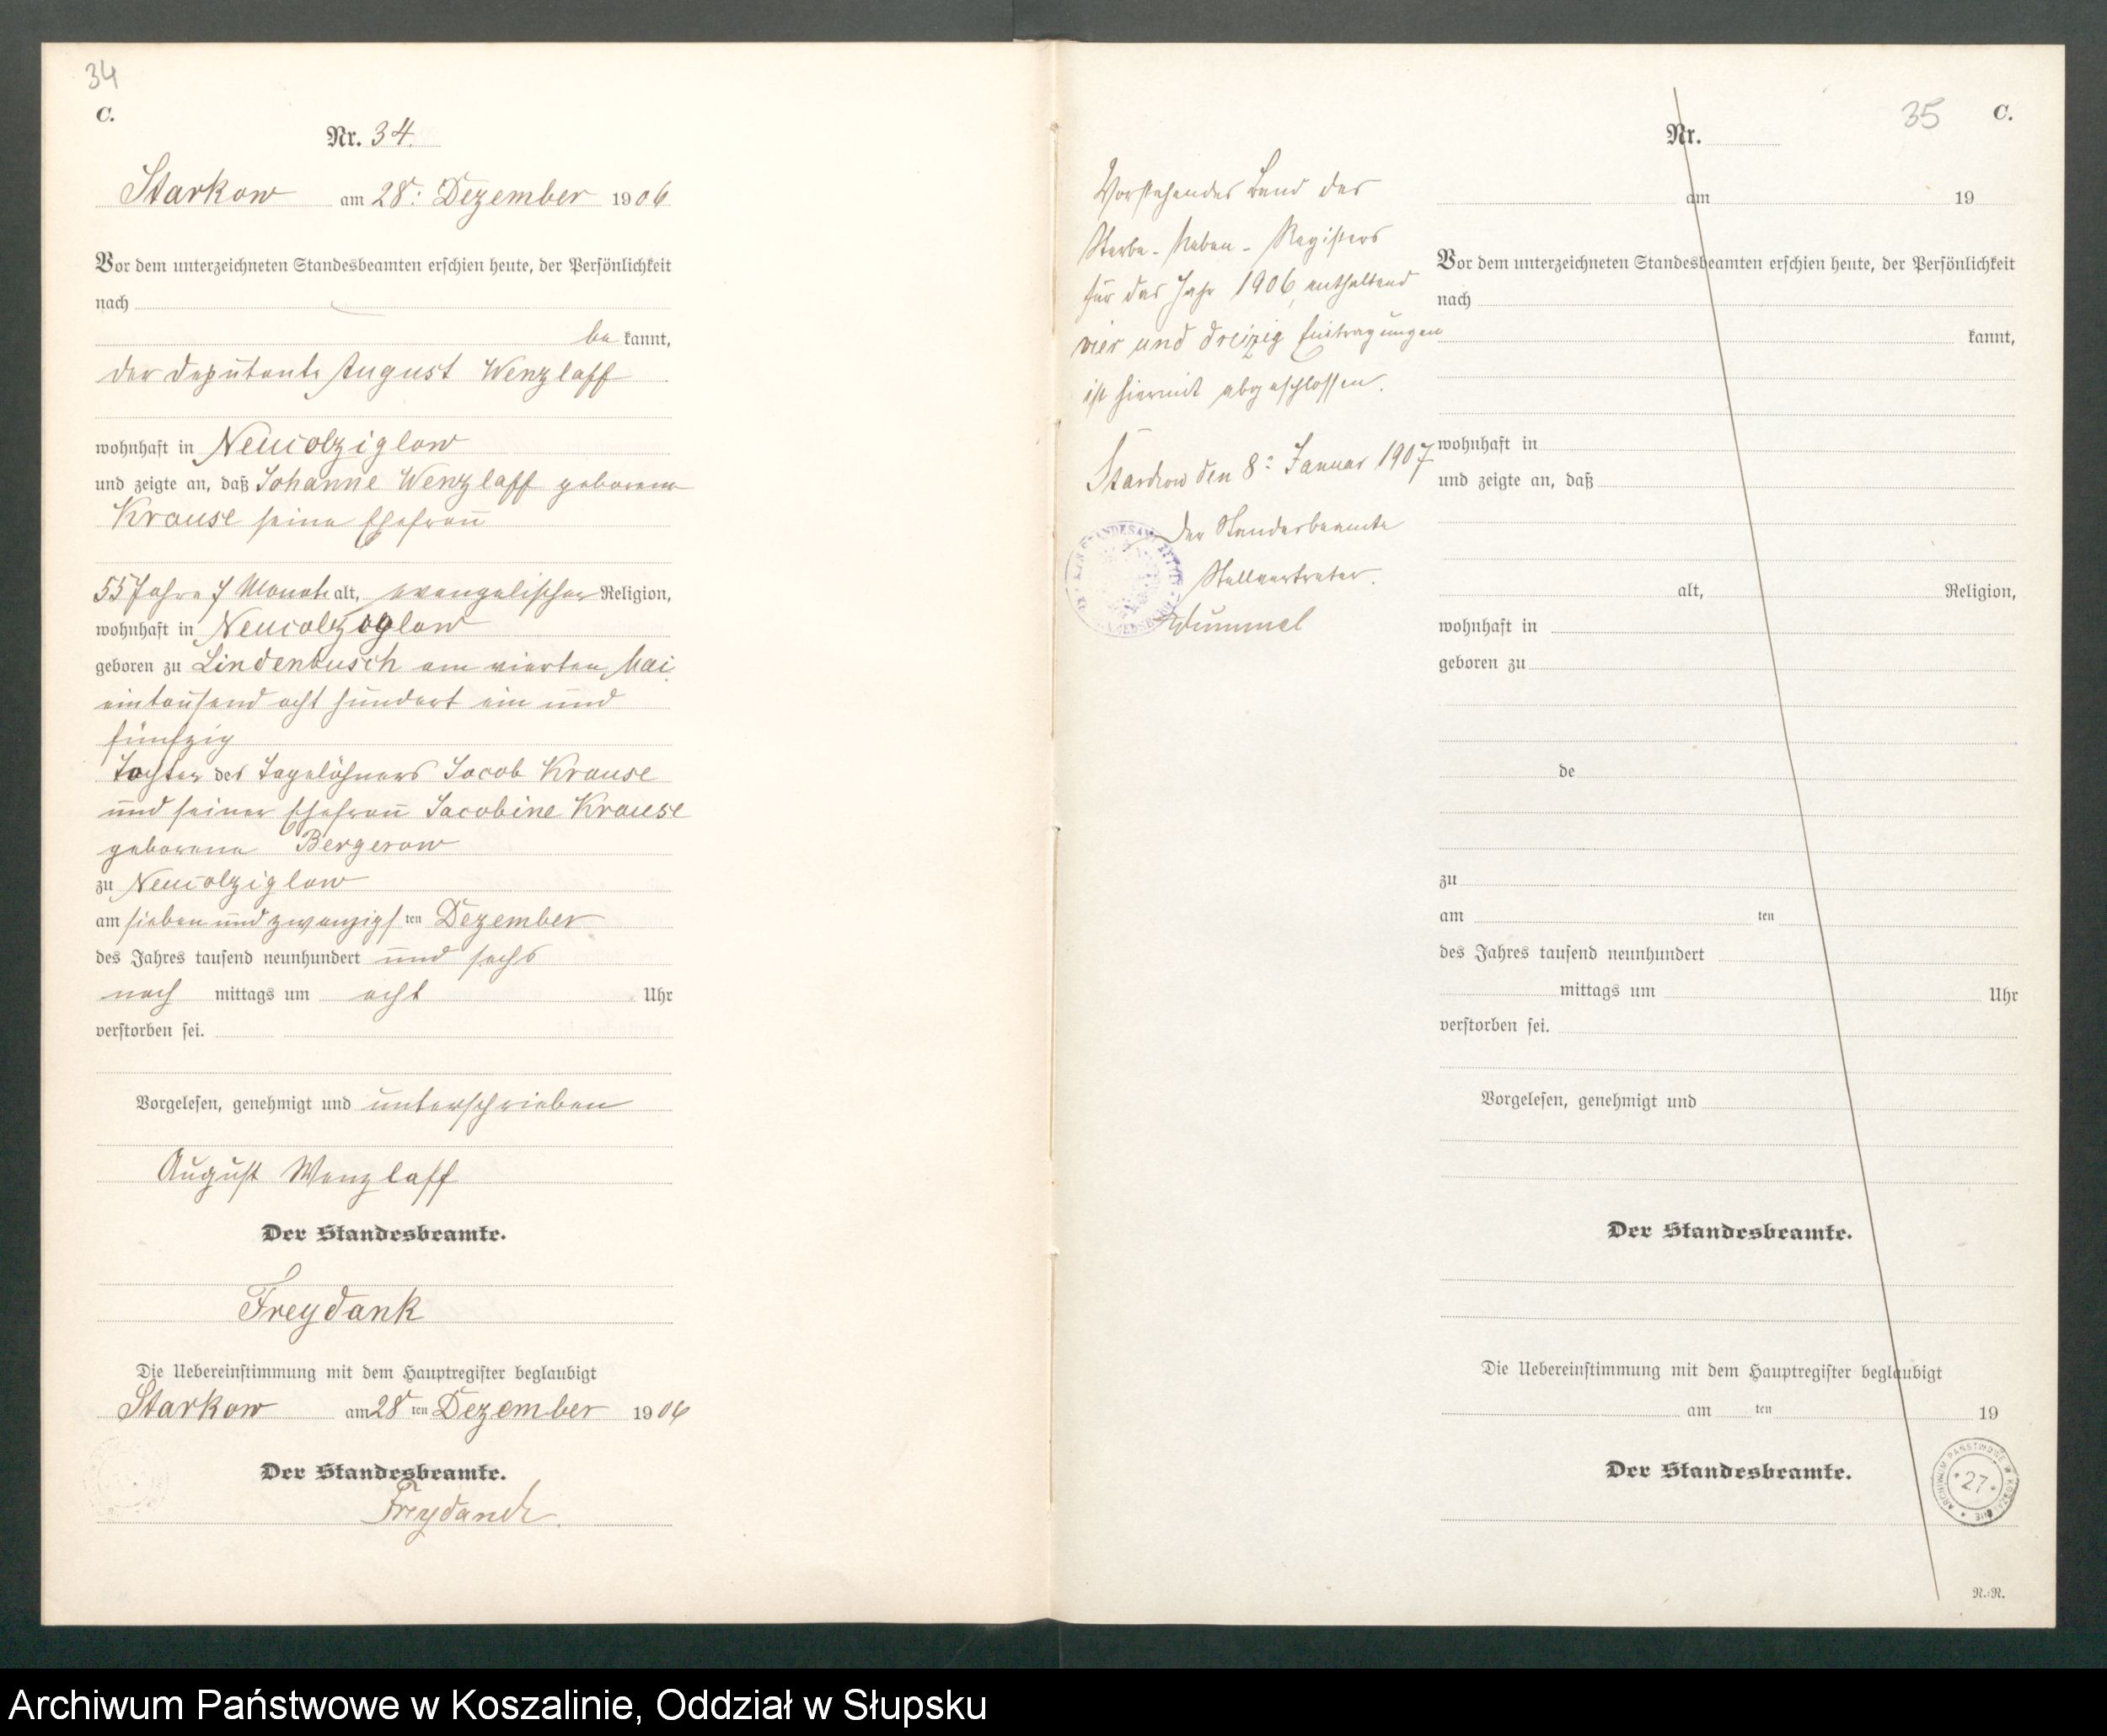 34
C.
Nr. 34.
Starkow am 28. Dezember 1906
Vor dem unterzeichneten Standesbeamten erschien heute, der Persönlichkeit
nach
be kannt,
der Deputante August Wenzlaff
wohnhaft in Neucolziglow
und zeigte an, daß Johanne Wenzlaff geborene
Krause seine Ehefrau
55 Jahre 7 Monate alt, evangelischer Religion,
wohnhaft in Neucolzoglow
geboren zu Lindenbusch am vierten Mai
eintausend acht hundert ein und
fünfzig
Tochter des Tagelöhners Jacob Krause
und seiner Ehefrau Jacobine Krause
geborene Bergerow
zu Neucolziglow
am sieben und zwanzigs ten Dezember
des Jahres tausend neunhundert und sechs
nach mittags um acht Uhr
verstorben sei.
Vorgelesen, genehmigt und unterschrieben
August Wenzlaff
Der Standesbeamte.
Freydank
Die Uebereinstimmung mit dem Hauptregister beglaubigt
Starkow am 28 ten Dezember 1906
Der Standesbeamte.
Freydank.
Vorstehendes Band des
Sterbe-Neben-Registers
für das Jahr 1906, enthaltend
vier und dreizig Eintragungen
ist hiermit abgeschlossen.
Starkow den 8. Januar 1907
Der Standesbeamte
Stellvertreter.
Wummel
35
C.
Nr.
am 19
Vor dem unterzeichneten Standesbeamten erschien heute, der Persönlichkeit
nach
kannt,
wohnhaft in
und zeigte an, daß
alt, Religion,
wohnhaft in
geboren zu
de
zu
am ten
des Jahres tausend neunhundert
mittags um Uhr
verstorben sei.
Vorgelesen, genehmigt und
Der Standesbeamte.
Die Uebereinstimmung mit dem Hauptregister beglaubigt
am ten 19
Der Standesbeamte.
ARCHIWUM PAŃSTWOWE W KOSZALINIE
27
N.:N.
Archiwum Państwowe w Koszalinie, Oddział w Słupsku